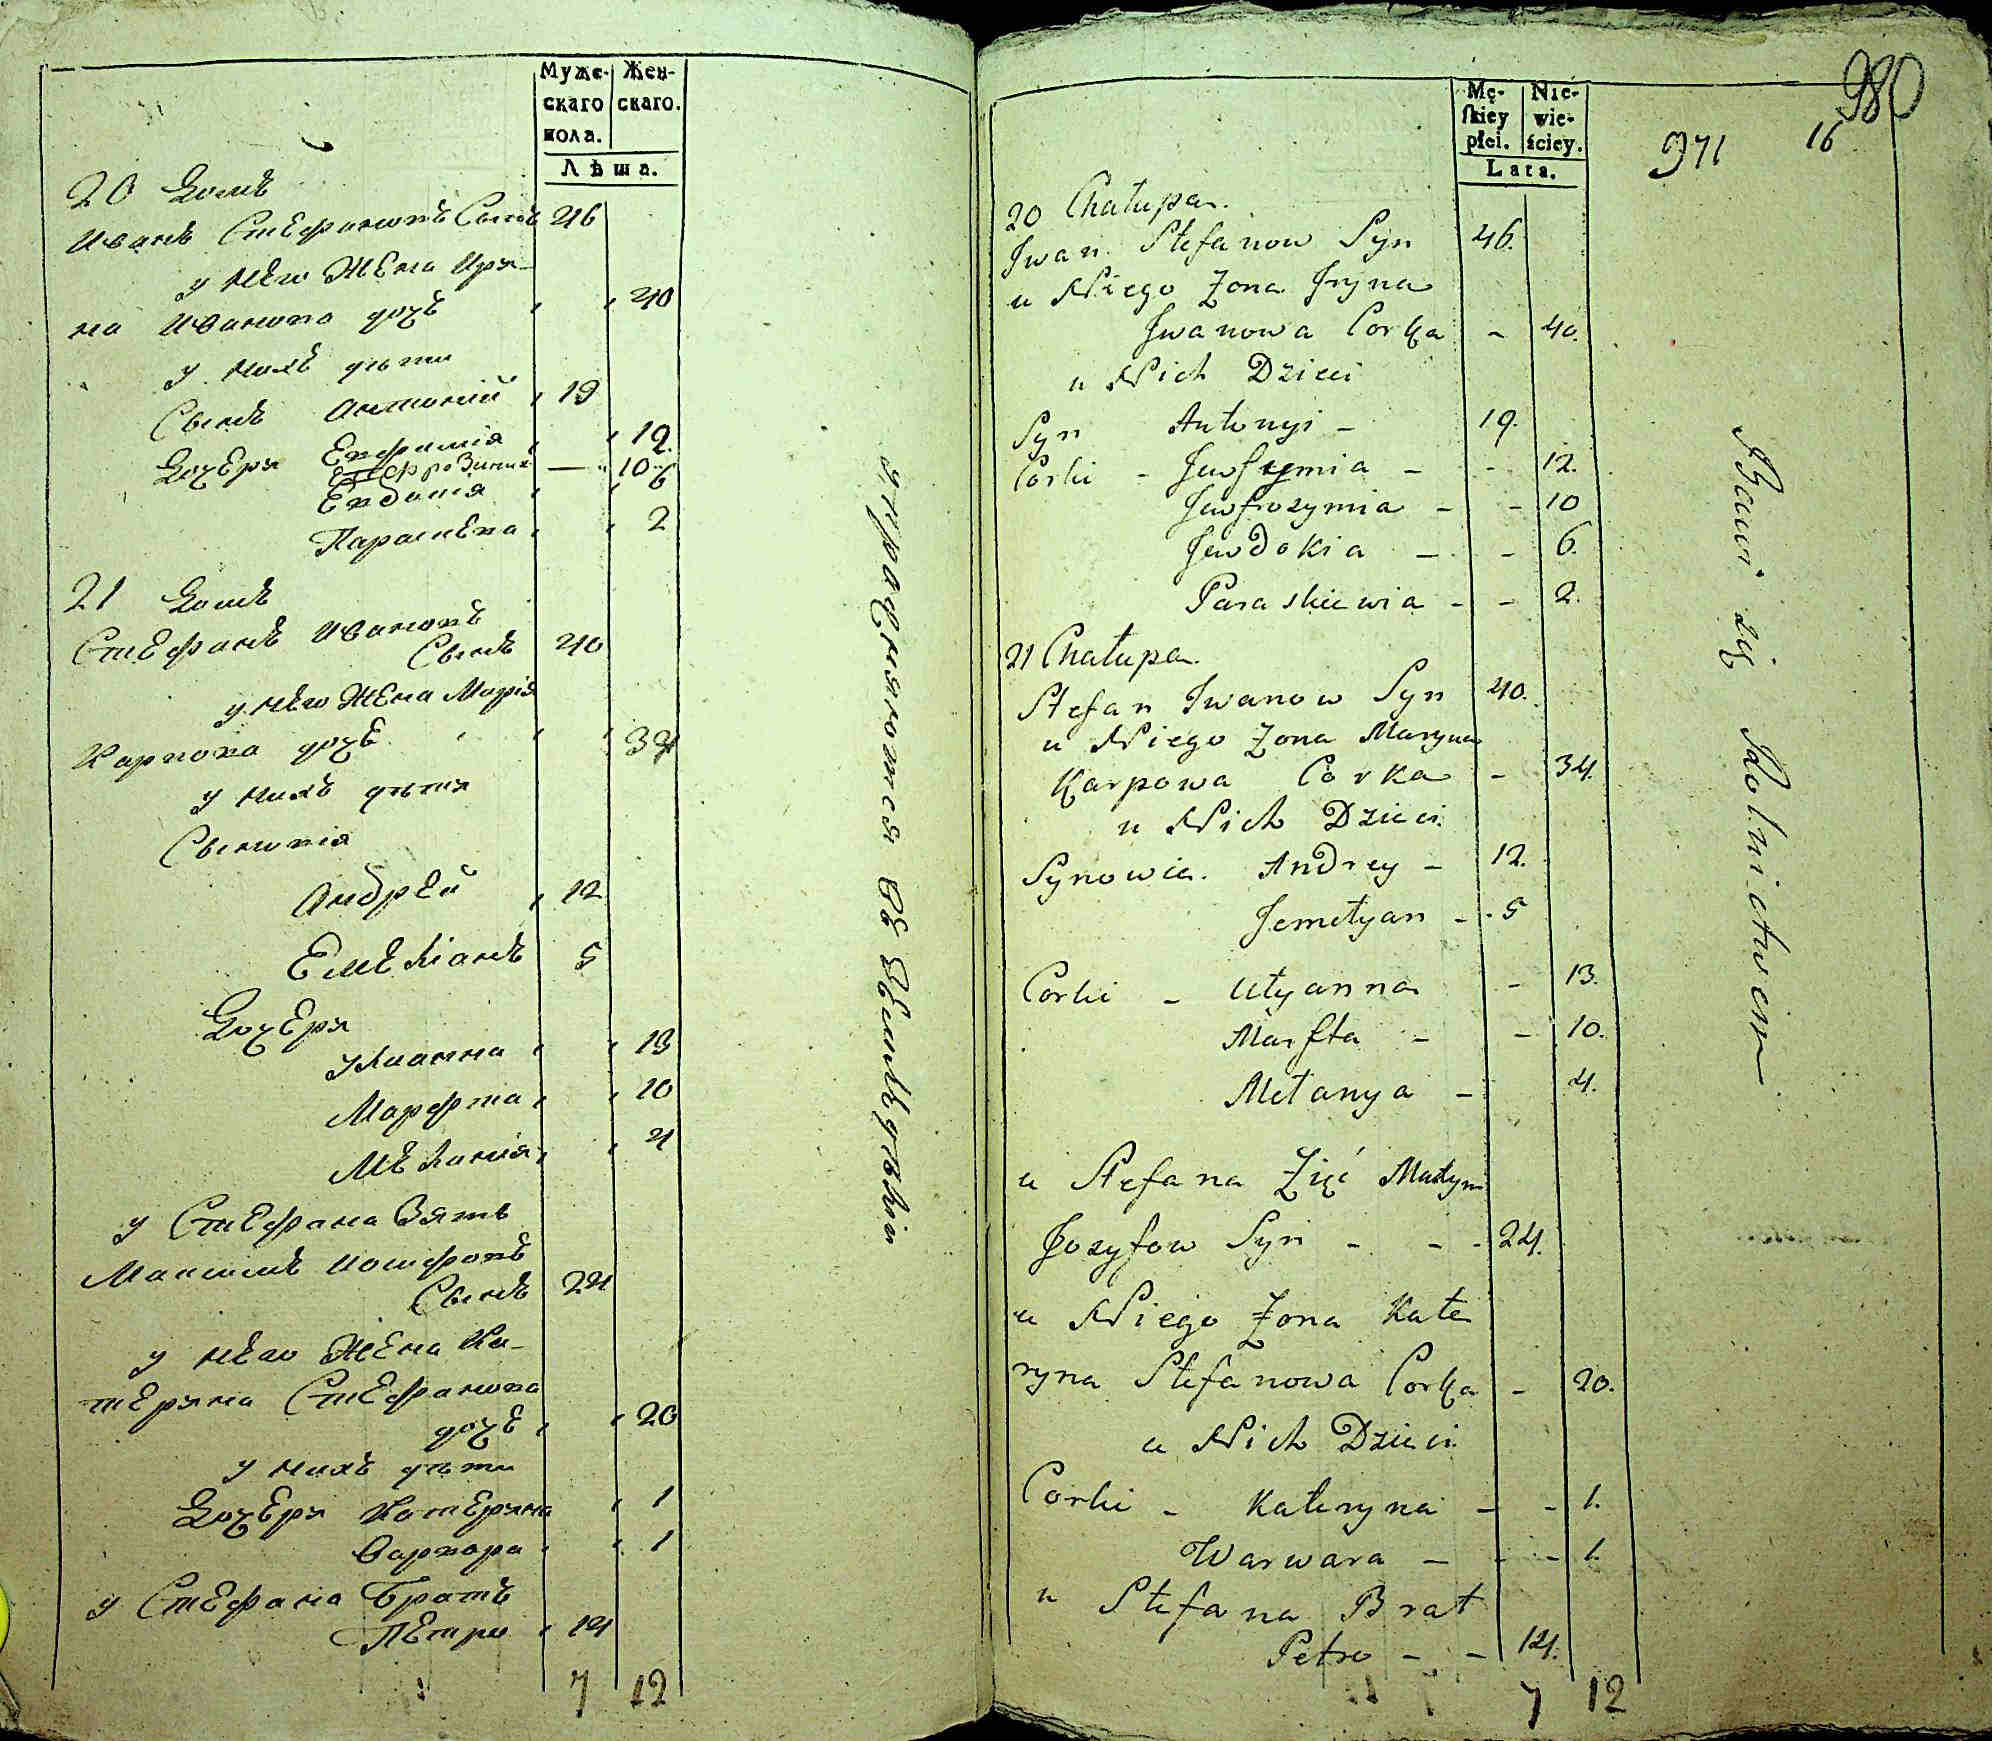 Муже-
скаго
пола.
Жен-
скаго.
Лѣта.
20 Домъ
Иванъ Стефановъ Сынъ 46
у него жена Ири-
на Иванова дочь 40
у нихъ дети
Сынъ Антоній 19
Дочери Евфимія 12.
Евфрозиния 10
Евдокія 6
Параскева 2
21 Домъ
Стефанъ Ивановъ
Сынъ 40
у него жена Марія
Карпова дочь 34
у нихъ дети
Сыновія
Андрей 12
Емеліанъ 5
Дочери
Улианна 13
Марфта 10
Меланія 4
у Стефана Зять
Максимъ Иосифовъ
Сынъ 24
у него жена Ка-
терина Стефанова
дочь 20
у нихъ дети
Дочери Катерина 1
Варвара 1
у Стефана Братъ
Петро 14
7 12
упражняются въ Земледѣліи
Mę-
skiey
płci.
Nie-
wie-
ściey.
Lata.
980
971 16
20 Chałupa.
Jwan Stefanow Syn 46.
u Niego Żona Jryna
Jwanowa Corka - 40.
u Nich Dzieci
Syn Antonyi - 19.
Corki - Jewfymia - - 12.
Jewfrozymia - - 10
Jewdokia - - 6.
Paraskiewia - - 2.
21 Chałupa.
Stefan Jwanow Syn 40.
u Niego Żona Maryna
Karpowa Corka - 34.
u Nich Dzieci.
Synowie. Andrey - 12.
Jemełyan - - 5
Corki - Ułyanna - 13.
Marfta - - 10.
Mełanya - 4.
u Stefana Zięć Maxym
Jozyfow Syn - - - 24.
u Niego Żona Kate
ryna Stefanowa Corka - 20.
u Nich Dzieci
Corki - Kateryna - - 1.
Warwara - - - 1.
u Stefana Brat
Petro - - 14.
7 12
Bawi się Rolnictwem